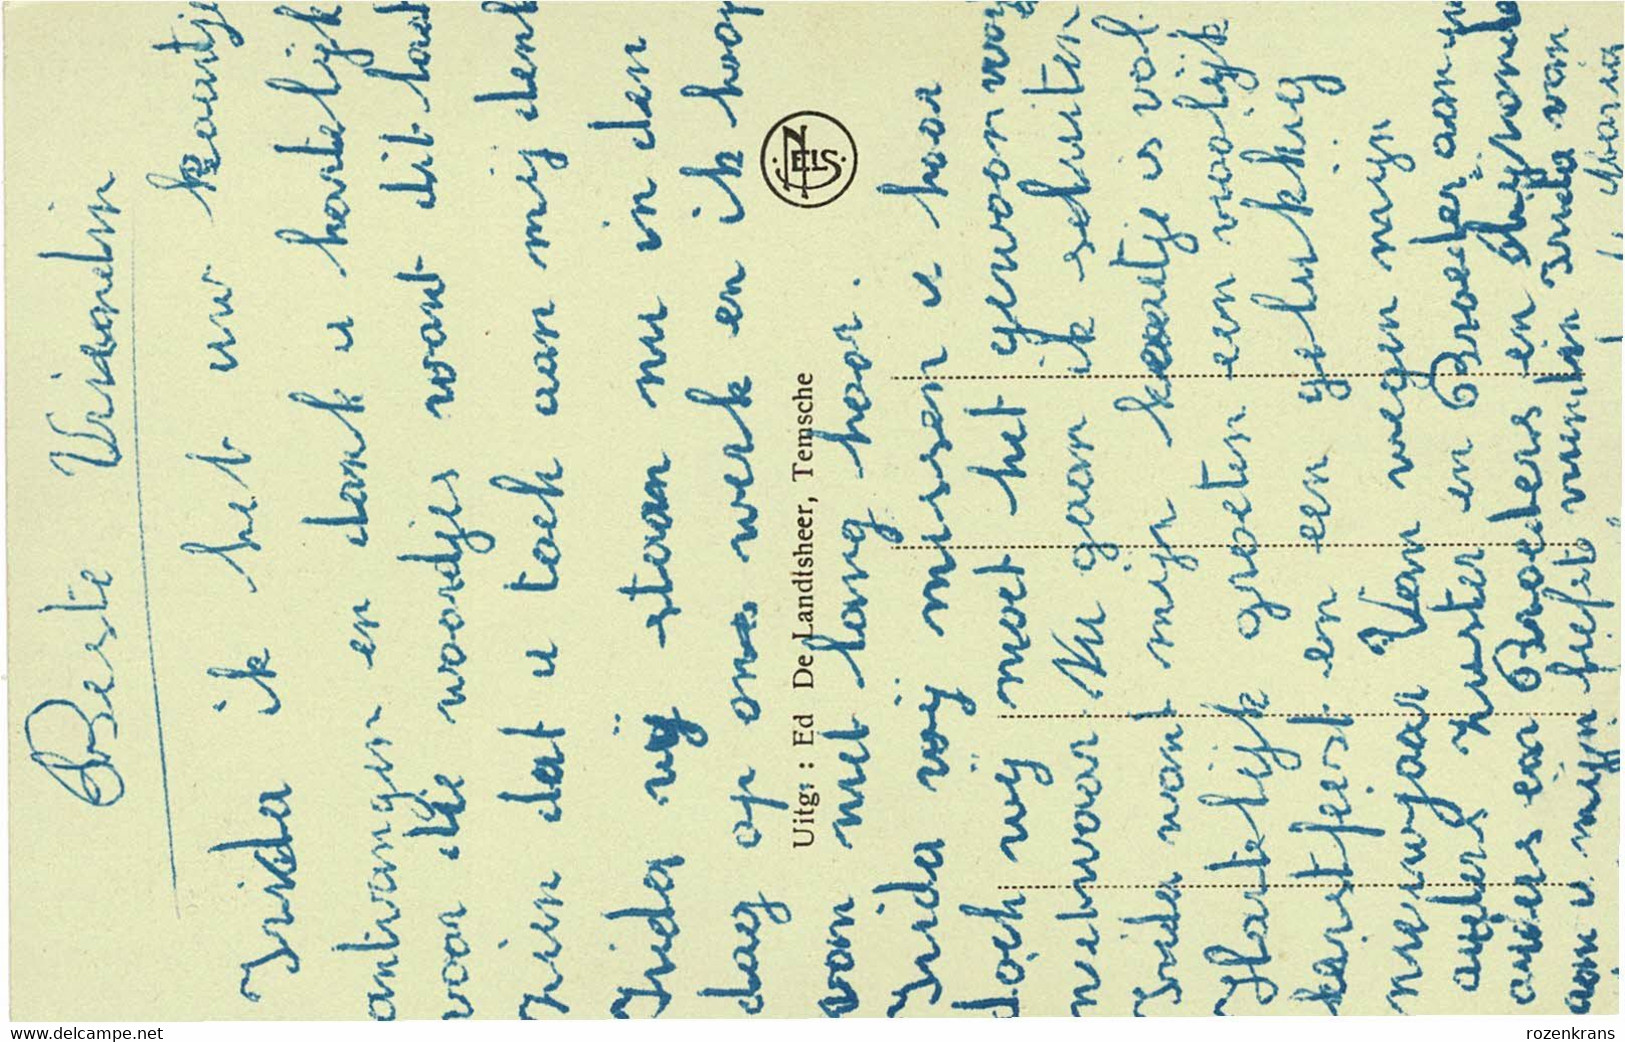 Beste Vriendin
Irida ik heb uw kaartje
ontvangen en dank u hartelijk
voor die woordjes want dit laat
zien dat u toch aan mij denk
Irida wij staan nu in den
dag op ons werk en ik hoop
van met lang hoor.
Irida wij missen u hoor
doch wij moet het gewoon
Nu gaan ik schuiten
Irida want mijn kaartje is vol
Hartelijk groeten een vroolijk
kerstfeest en een gelukkig
nieuwjaar Van wegen mijn
ouders zuster en Broeder aan
ouders en Broeders en
aan u mijn liefste vriendin Irida van
Maria
Uitg. : Ed De Landtsheer, Temsche
www.delcampe.net
rozenkrans